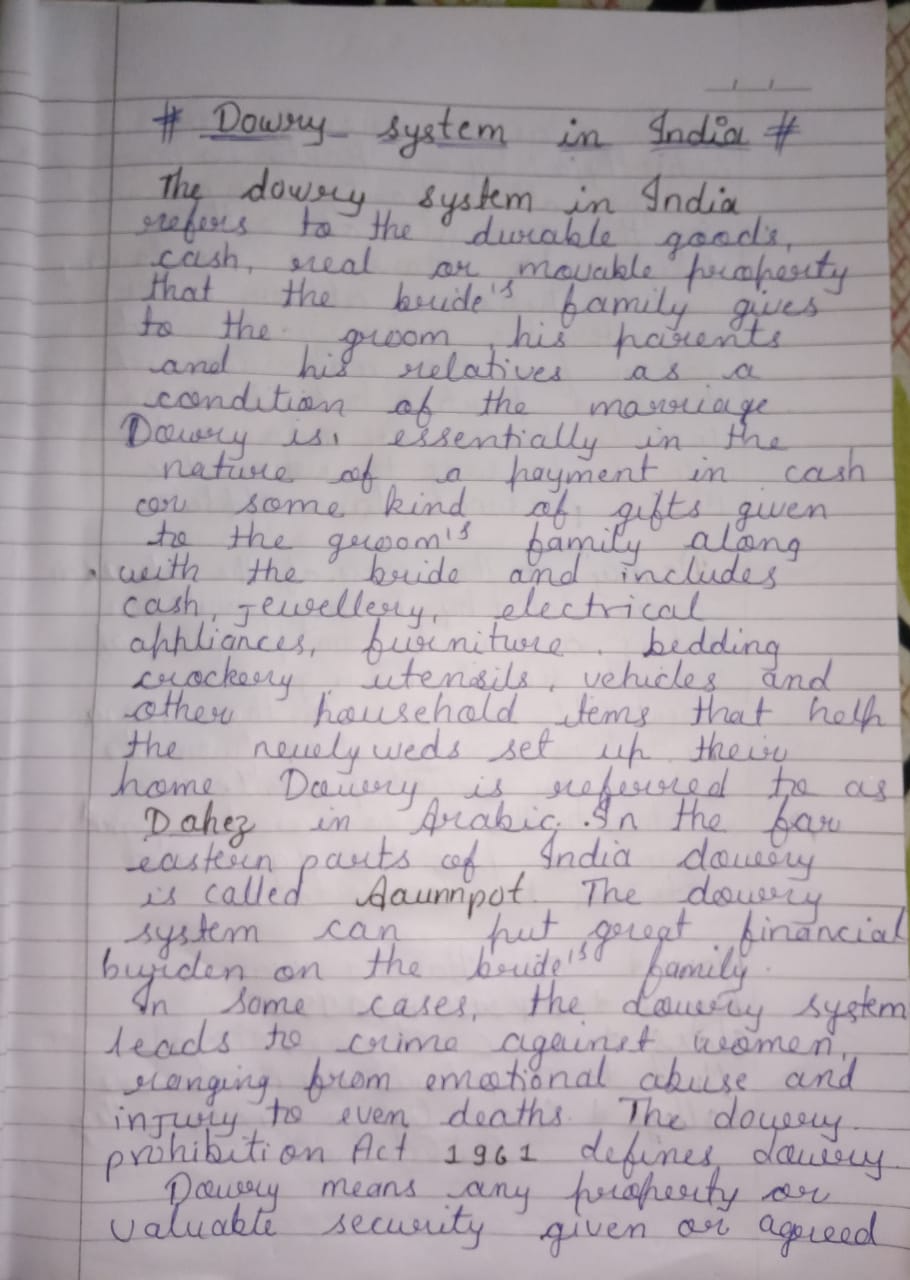 # Dowry system in India #
The dowry system in India
refers to the durable goods,
cash, real or movable property
that the bride's family gives
to the groom, his parents
and his relatives as a
condition of the marriage
Dowry is essentially in the
nature of a payment in cash
or some kind of gifts given
to the groom's family along
with the bride and includes
cash, Jewellery, electrical
appliances, furniture, bedding
crockery, utensils, vehicles and
other household items that help
the newlyweds set up their
home Dowry is referred to as
Dahez in Arabic. In the far
eastern parts of India dowery
is called Aaunnpot. The dowry
system can put great financial
burden on the bride's family.
In some cases, the dowry system
leads to crime against women,
ranging from emotional abuse and
injury to even deaths. The dowery
prohibition Act 1961 defines dowery
Dowry means any property or
valuable security given or agreed